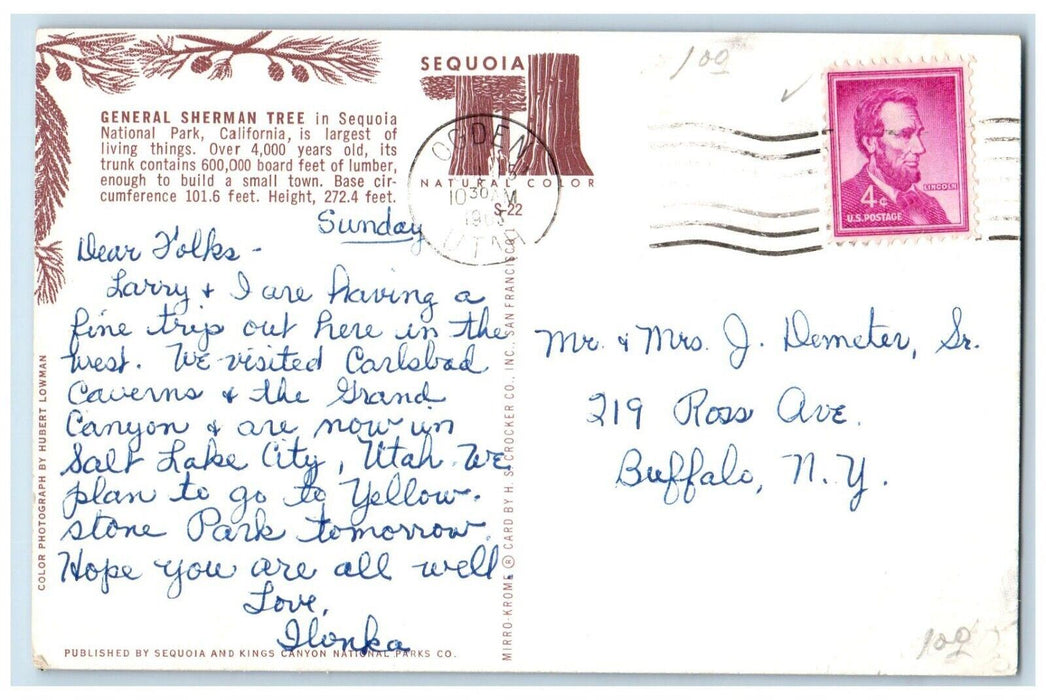 GENERAL SHERMAN TREE in Sequoia
National Park, California, is largest of
living things. Over 4,000 years old, its
trunk contains 600,000 board feet of lumber,
enough to build a small town. Base cir-
cumference 101.6 feet. Height, 272.4 feet.
SEQUOIA
NATURAL COLOR
S-22
OGDEN
10 30 AM
UTAH
100
LINCOLN
4¢
U.S. POSTAGE
Sunday
Dear Folks -
Larry & I are having a
fine trip out here in the
west. We visited Carlsbad
Caverns & the Grand
Canyon & are now in
Salt Lake City, Utah. We
plan to go to Yellow-
stone Park tomorrow.
Hope you are all well.
Love,
Ilonka
Mr. & Mrs. J. Demeter, Sr.
219 Ross Ave.
Buffalo, N.Y.
COLOR PHOTOGRAPH BY HUBERT LOWMAN
MIRRO-KROME ® CARD BY H. S. CROCKER CO., INC., SAN FRANCISCO
PUBLISHED BY SEQUOIA AND KINGS CANYON NATIONAL PARKS CO.
100